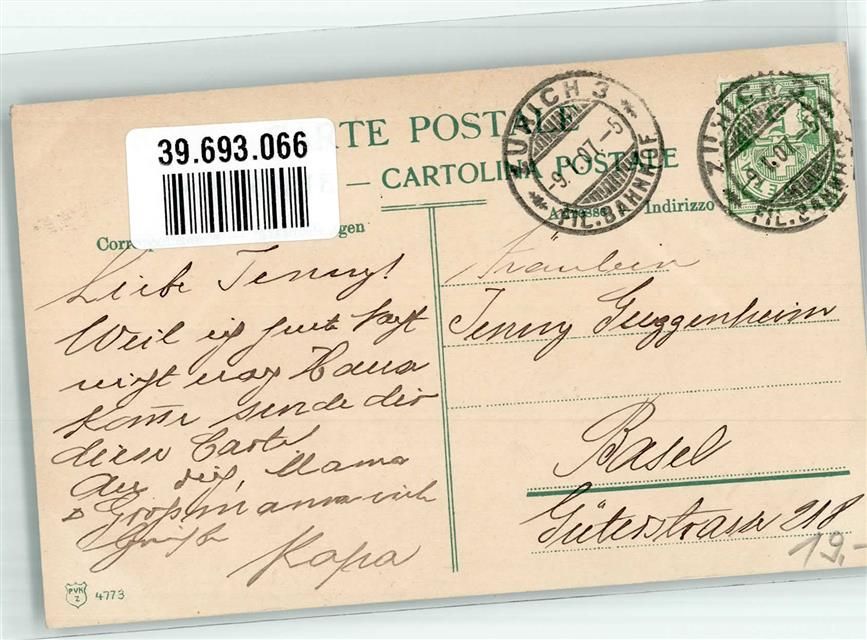 39.693.066
TE POSTALE
— CARTOLINA POSTALE
Adresse Indirizzo
ZÜRICH 3
-9. I. 07.-5
FIL. BAHNHOF
ZÜRICH 3
I. 07.-5
FIL. BAHNHOF
Liebe Jenny!
Weil ich heute
nicht nach Haus
komme sende dir
diese Carte
An dich, Mama
Großmama
Grüße
Papa
Fräulein
Jenny Guggenheim
Basel
Güterstrasse 218
19,-
PVK
Z
4773